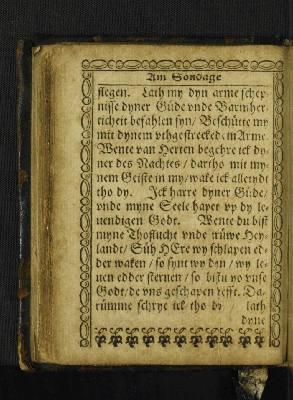 Am Sondage
slegen. Lath my dyn arme schep
nisse dyner Güde vnde Barmher
ticheit befahlen syn / Beschütte my
mit dynem vthgestrecked: m Arme.
Wente van Herten begehre ick dy
ner des Nachtes / dartho mit my
nem Geiste in my / wake ick alletydt
tho dy. Ick harre dyner Güde /
vnde myne Seele hapet vp dy le
uendigen Godt. Wente du bist
myne Thoflucht vnde trüwe Hey
landt / Süh HEre wy schlapen ed
der waken / so synt wy dyn / wy le
uen edder sternen / so bistu yo vnse
Godt / de vns geschapen hefft. Da
rümme schrye ick tho dy / lath
dyne